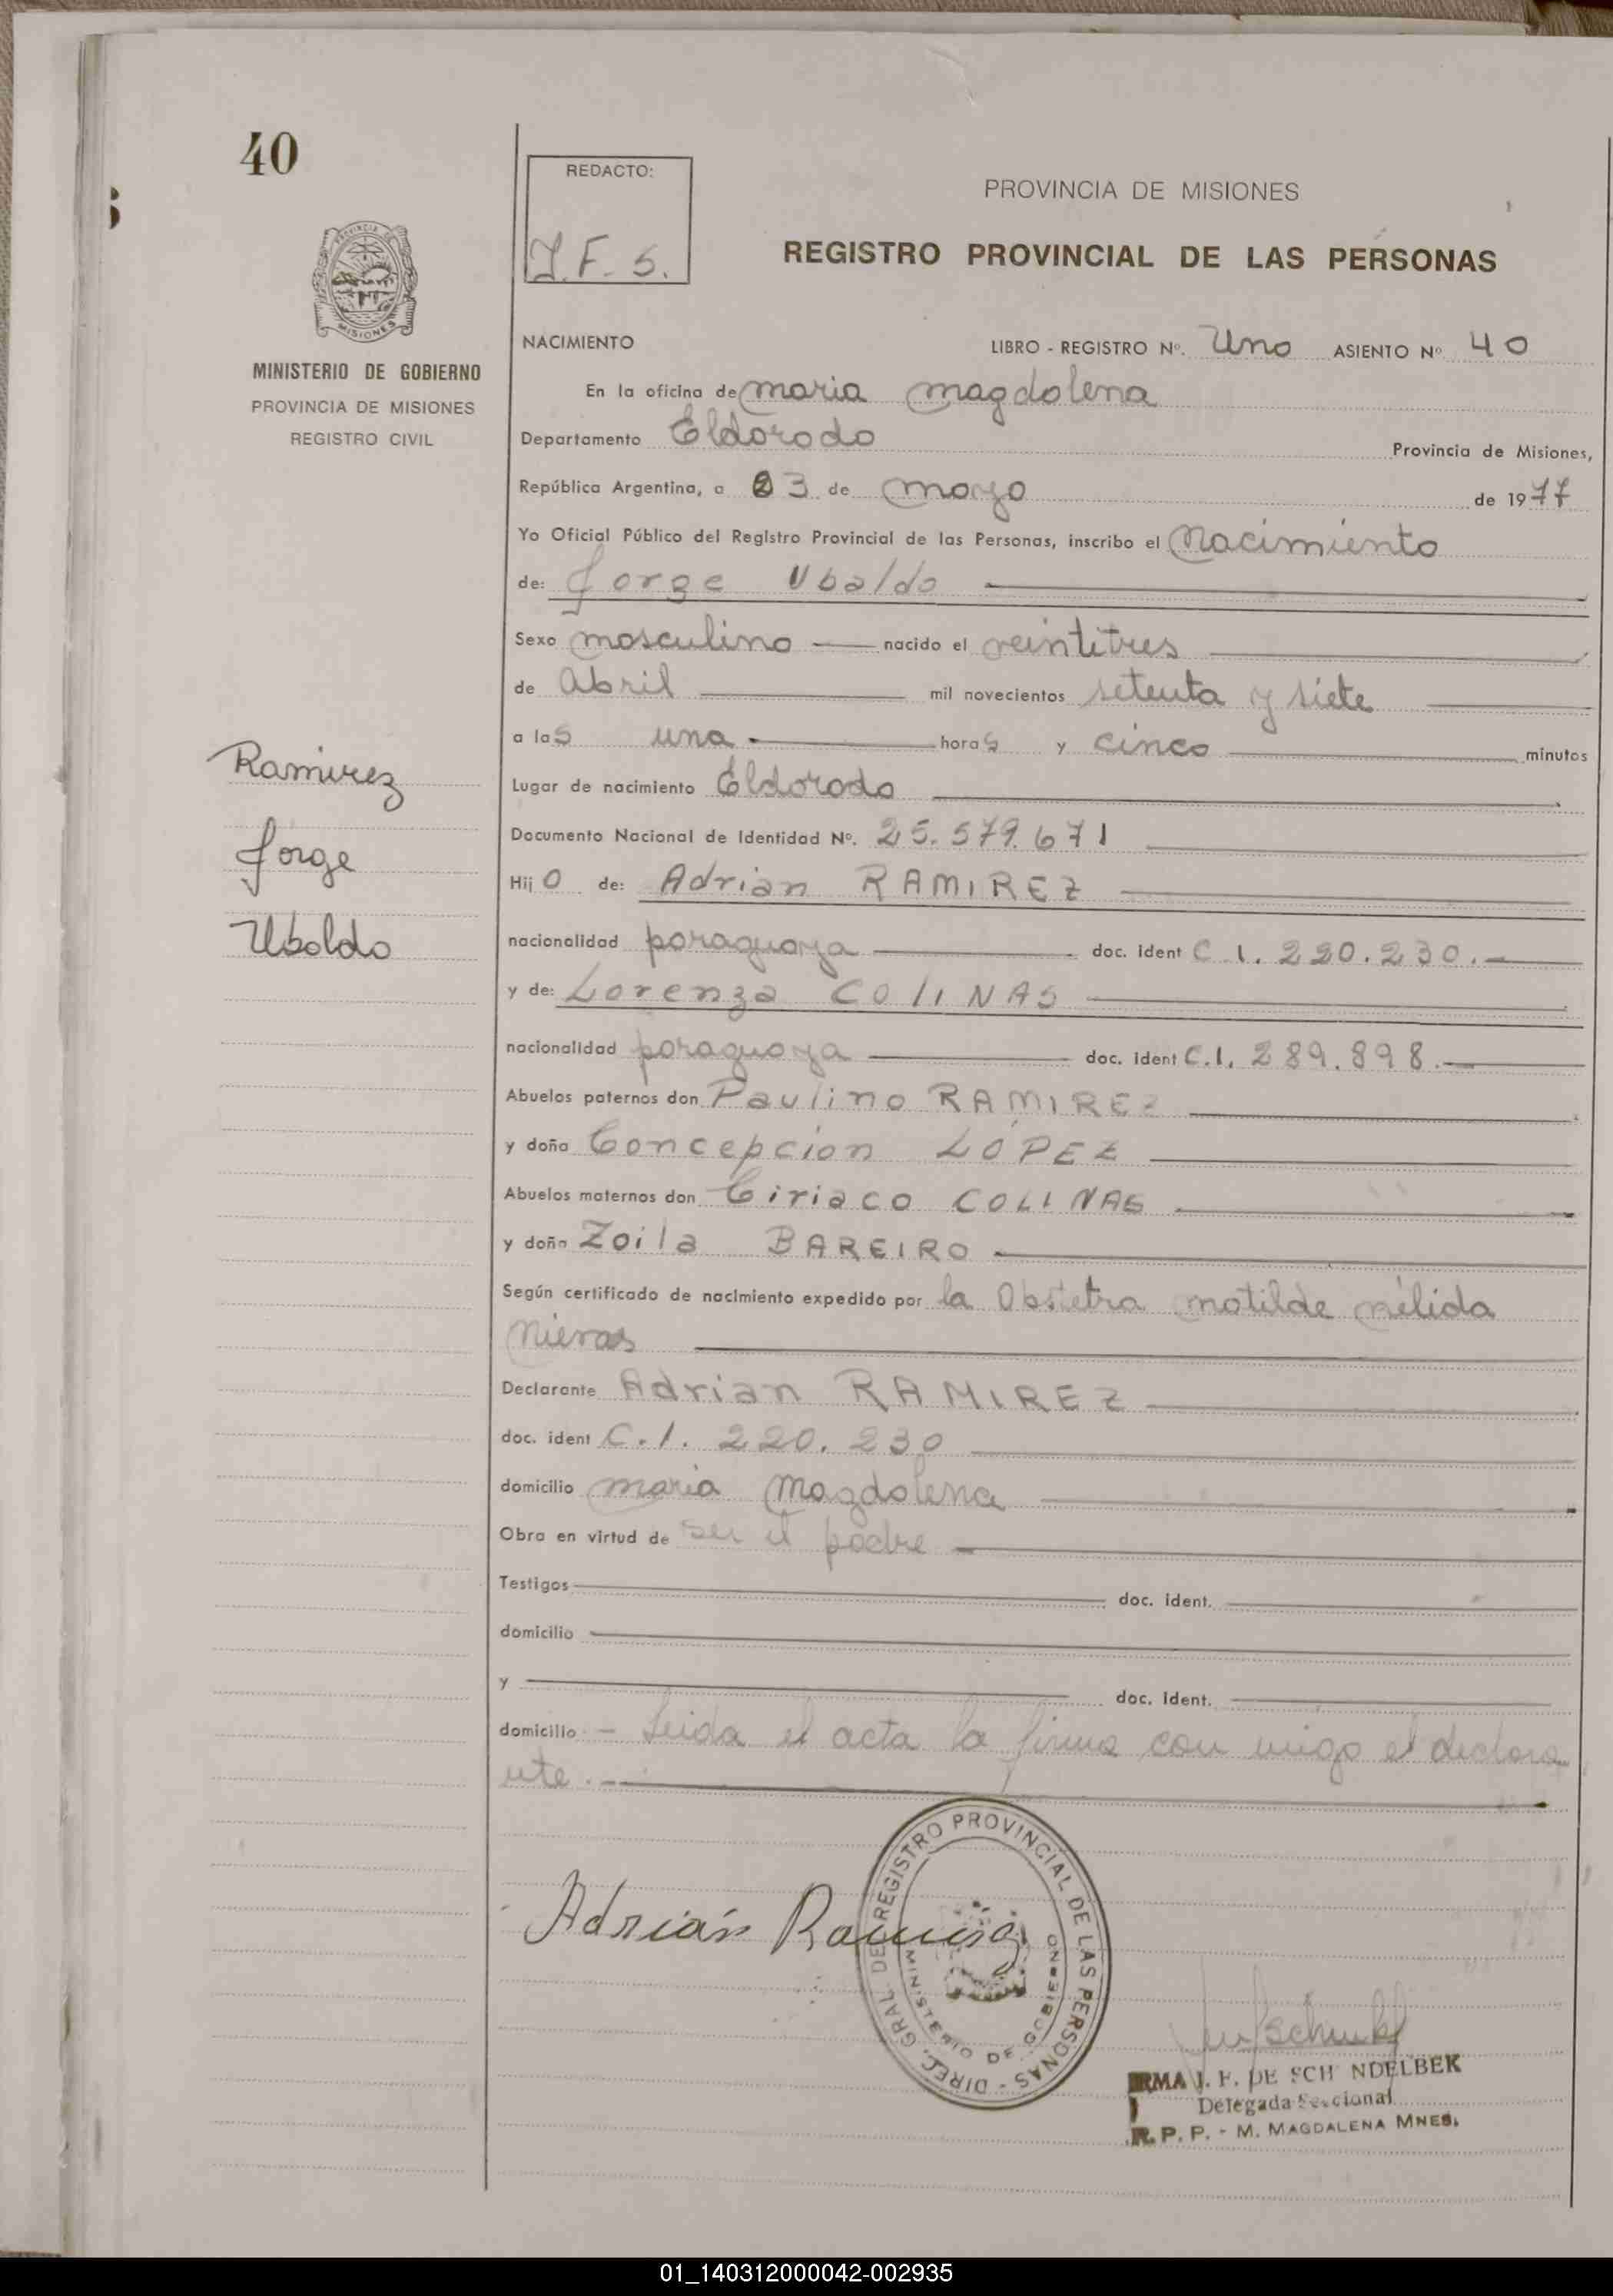 40
REDACTO:
J. F. S.
PROVINCIA DE MISIONES
REGISTRO PROVINCIAL DE LAS PERSONAS
PROVINCIA DE
MISIONES
MINISTERIO DE GOBIERNO
PROVINCIA DE MISIONES
REGISTRO CIVIL
Ramirez
Jorge
Ubaldo
NACIMIENTO LIBRO - REGISTRO Nº. Uno ASIENTO Nº 40
En la oficina de maria magdalena
Departamento Eldorado Provincia de Misiones,
República Argentina, a 23 de mayo de 1977
Yo Oficial Público del Registro Provincial de las Personas, inscribo el Nacimiento
de: Jorge Ubaldo
Sexo masculino nacido el veintitres
de abril mil novecientos setenta y siete
a las una horas y cinco minutos
Lugar de nacimiento Eldorado
Documento Nacional de Identidad Nº. 25.579.671
Hijo de: Adrian RAMIREZ
nacionalidad paraguaya doc. ident C.I. 220.230.
y de: Lorenza COLINAS
nacionalidad paraguaya doc. ident C.I. 289.898.
Abuelos paternos don Paulino RAMIREZ
y doña Concepcion LÓPEZ
Abuelos maternos don Ciriaco COLINAS
y doña Zoila BAREIRO
Según certificado de nacimiento expedido por la Obstetra matilde nélida
nieras
Declarante Adrian RAMIREZ
doc. ident C.I. 220.230
domicilio maria Magdalena
Obra en virtud de ser el padre
Testigos doc. ident.
domicilio
y doc. ident.
domicilio - Leida el acta la firma con migo el declara
nte.
Adrián Ramirez
DIREC. GRAL. DEL REGISTRO PROVINCIAL DE LAS PERSONAS -
MINISTERIO DE GOBIERNO
IRMA J. F. DE SCH NDELBEK
Delegada Seccional
R. P. P. - M. MAGDALENA MNES.
01_140312000042-002935